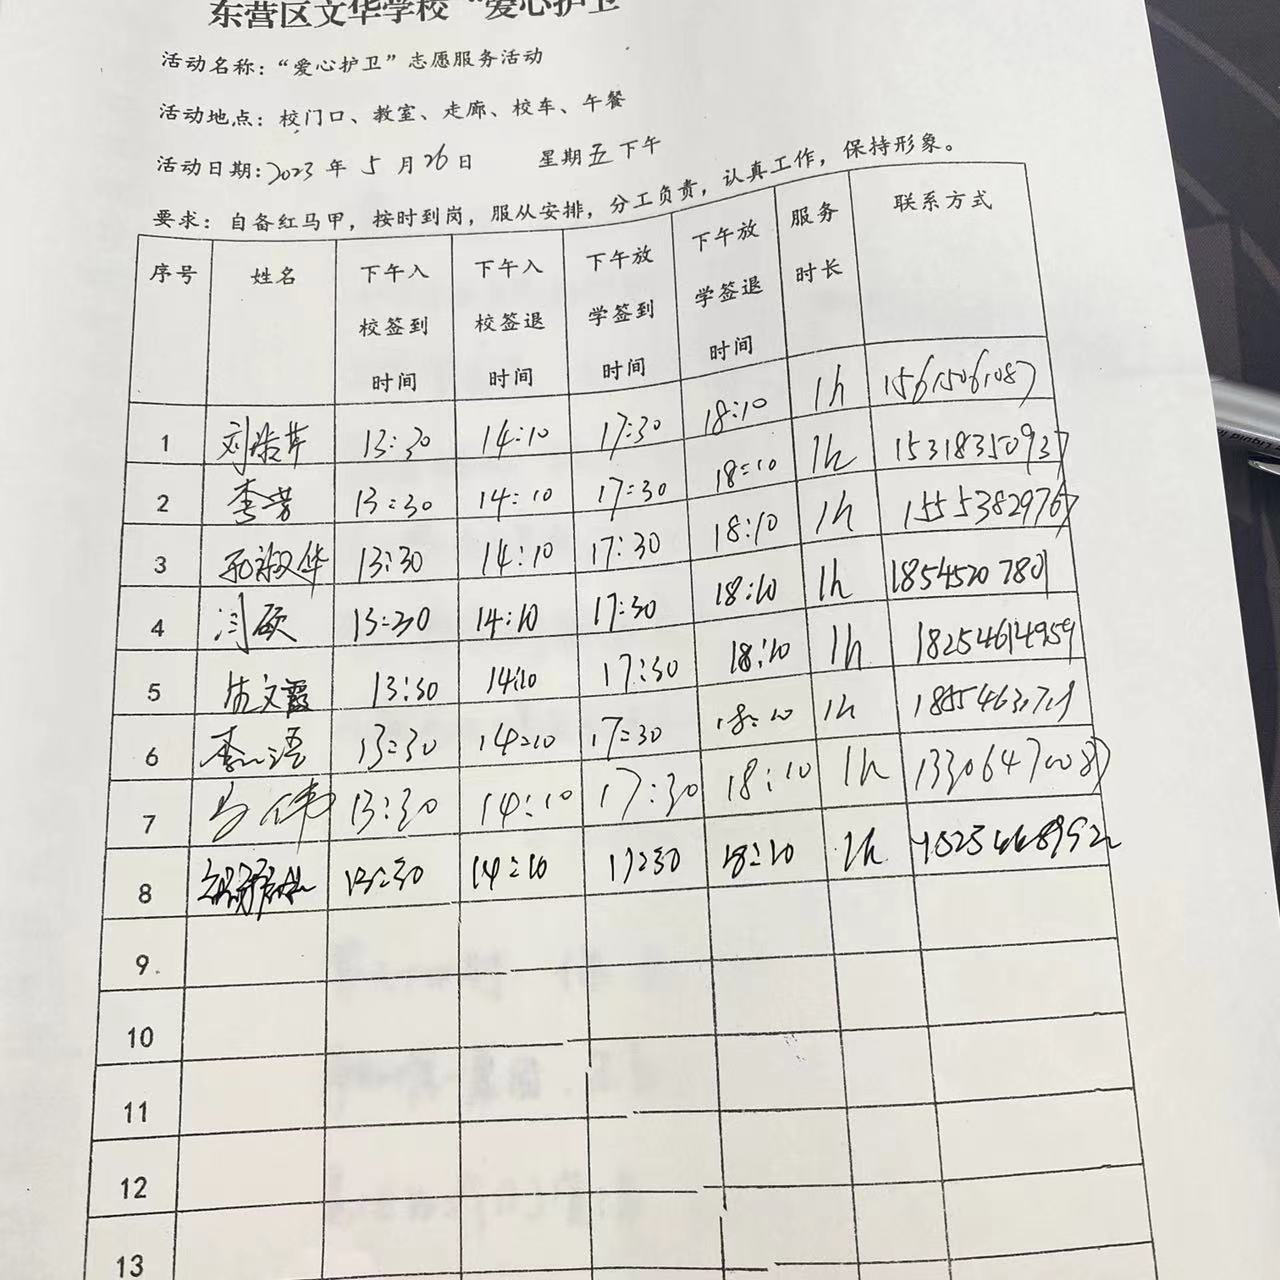 东营区文华学校“爱心护卫
活动名称：“爱心护卫”志愿服务活动
活动地点：校门口、教室、走廊、校车、午餐
活动日期:2023年5月26日 星期五下午
要求：自备红马甲，按时到岗，服从安排，分工负责，认真工作，保持形象。
序号 姓名 下午入校签到时间 下午入校签退时间 下午放学签到时间 下午放学签退时间 服务时长 联系方式
1 13:30 14:10 17:30 18:10 1h 15615061087
2 李芳 13:30 14:10 17:30 18:10 1h 15318350937
3 孙淑华 13:30 14:10 17:30 18:10 1h 15553829767
4 闫硕 13:30 14:10 17:30 18:10 1h 18545207801
5 13:30 14:10 17:30 18:10 1h 18254614959
6 13:30 14:10 17:30 18:10 1h
7 马伟 13:30 14:10 17:30 18:10 1h 13306470087
8 13:30 14:10 17:30 18:10 1h
9
10
11
12
13